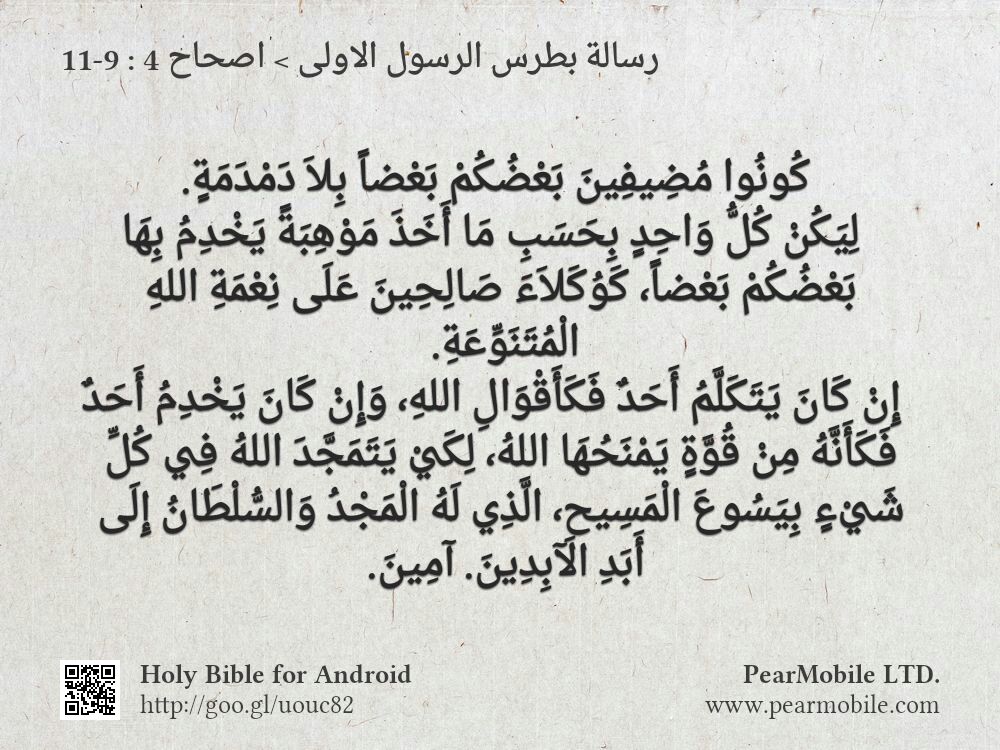 رسالة بطرس الرسول الاولى > اصحاح 4 : 9-11
كُونُوا مُضِيفِينَ بَعْضُكُمْ بَعْضاً بِلاَ دَمْدَمَةٍ.
لِيَكُنْ كُلُّ وَاحِدٍ بِحَسَبِ مَا أَخَذَ مَوْهِبَةً يَخْدِمُ بِهَا
بَعْضُكُمْ بَعْضاً، كَوُكَلاَءَ صَالِحِينَ عَلَى نِعْمَةِ اللهِ
الْمُتَنَوِّعَةِ.
إِنْ كَانَ يَتَكَلَّمُ أَحَدٌ فَكَأَقْوَالِ اللهِ، وَإِنْ كَانَ يَخْدِمُ أَحَدٌ
فَكَأَنَّهُ مِنْ قُوَّةٍ يَمْنَحُهَا اللهُ، لِكَيْ يَتَمَجَّدَ اللهُ فِي كُلِّ
شَيْءٍ بِيَسُوعَ الْمَسِيحِ، الَّذِي لَهُ الْمَجْدُ وَالسُّلْطَانُ إِلَى
أَبَدِ الآبِدِينَ. آمِينَ.
Holy Bible for Android
http://goo.gl/uouc82
PearMobile LTD.
www.pearmobile.com